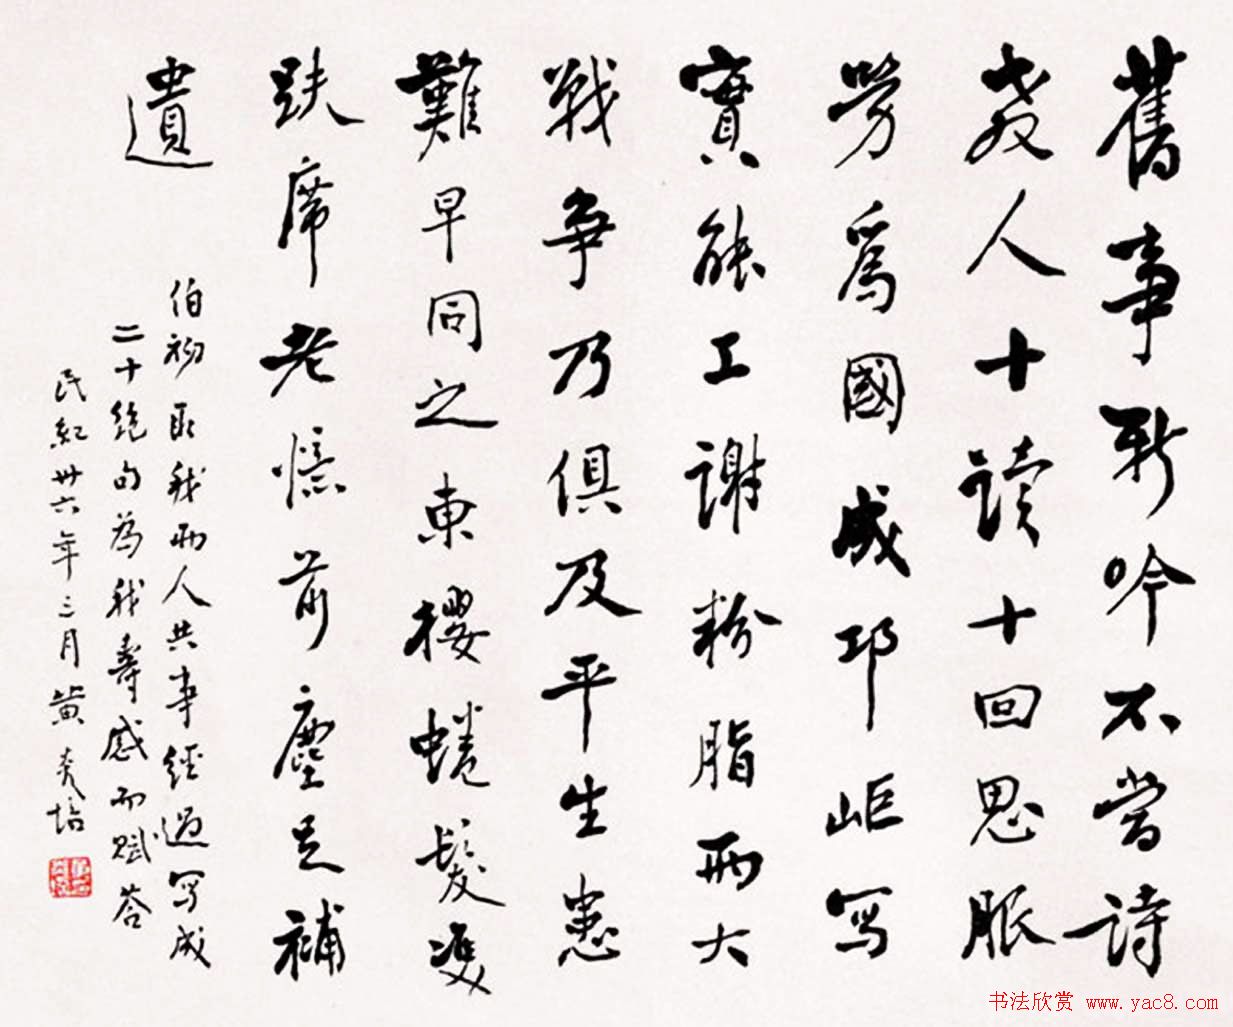 舊事新吟不當詩
教人十讀十回思脈
勞爲國感邛岠寫
實能工謝粉脂兩大
戰爭乃俱及平生患
難早同之東櫻蜷髮雙
趺席老憶前塵足補
遺
伯初取我兩人共事經過寫成
二十絕句為我壽感而賦答
民紀卅六年三月黃炎培
书法欣赏 www.yac8.com